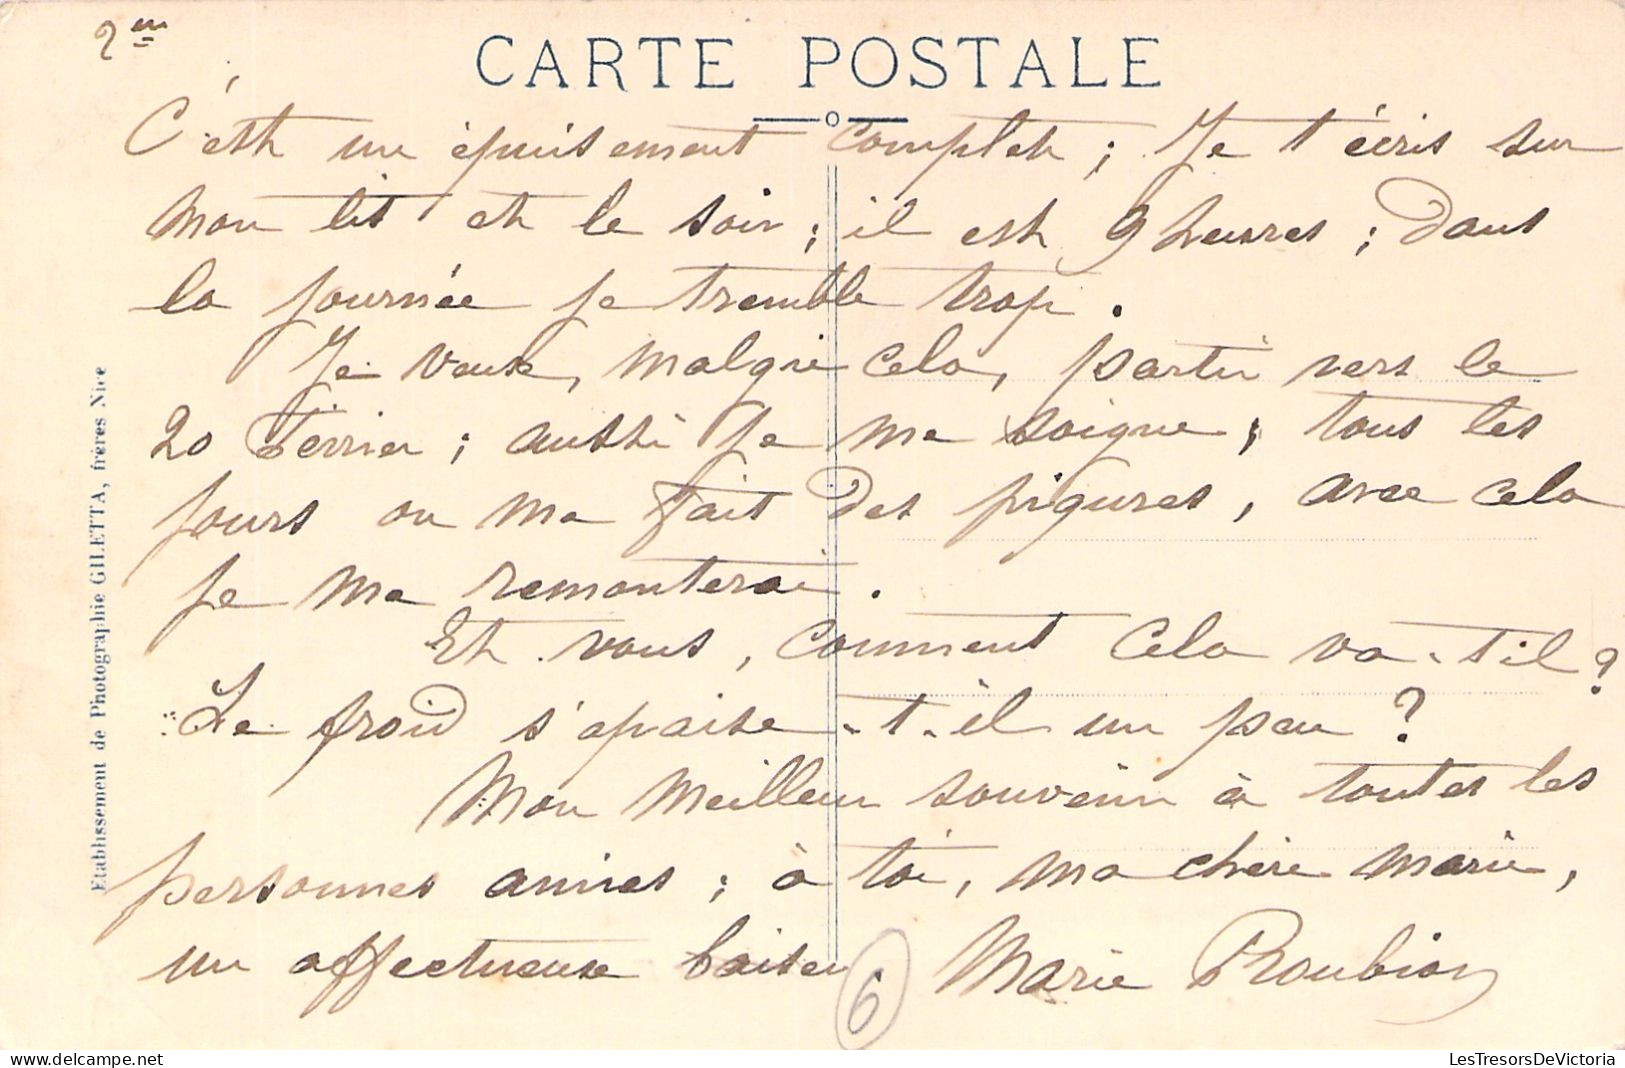 2me
CARTE POSTALE
C'est un épuisement complet ; Je t'écris sur
mon lit et le soir ; il est 9 heures ; dans
la journée je tremble trop.
Je veux, malgré cela, partir vers le
20 Février ; aussi je me soigne ; tous les
jours on me fait des piqures, avec cela
je me remonterai.
Et vous, comment cela va-t-il ?
Le froid s'apaise-t-il un peu ?
Mon meilleur souvenir à toutes les
personnes amies ; à toi, ma chère Marie,
un affectueux baiser Marie Roubion
6
Etablissement de Photographie GILETTA, frères Nice
LesTresorsDeVictoria
delcampe.net